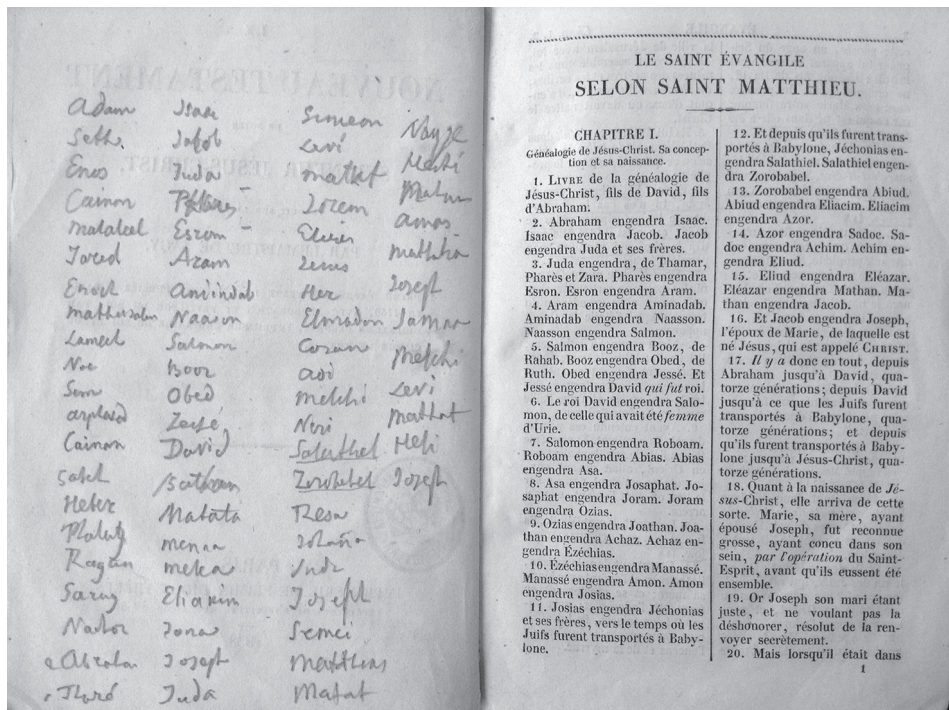 Adam
Seth
Enos
Cainan
malaleel
Jared
Enoch
mathusalem
Lamech
Noe
Sem
arphaxad
Cainan
Heber
Phaleg
Ragau
Sarug
Nachor
Abraham
Tharé
Isaac
Jakob
Juda
Pharès
Esrom
Aram
Aminadab
Naason
Salmon
Booz
Obed
Jessé
David
Nathan
Matata
menna
melea
Eliakim
Jonas
Joseph
Juda
Simeon
Levi
mathat
Jorem
Eliezer
Her
Elmadan
Cosan
addi
melchi
Neri
Salathel
Zorobabel
Resa
Juda
Joseph
Semei
Matthias
Matat
Nagge
Mathat
amos
matthia
Joseph
Jamna
Melchi
Levi
Matthat
Heli
Joseph
LE SAINT ÉVANGILE
SELON SAINT MATTHIEU.
CHAPITRE I.
Généalogie de Jésus-Christ. Sa concep-
tion et sa naissance.
1. LIVRE de la généalogie de
Jésus-Christ, fils de David, fils
d'Abraham.
2. Abraham engendra Isaac.
Isaac engendra Jacob. Jacob
engendra Juda et ses frères.
3. Juda engendra, de Thamar,
Pharès et Zara. Pharès engendra
Esron. Esron engendra Aram.
4. Aram engendra Aminadab.
Aminadab engendra Naasson.
Naasson engendra Salmon.
5. Salmon engendra Booz, de
Rahab. Booz engendra Obed, de
Ruth. Obed engendra Jessé. Et
Jessé engendra David qui fut roi.
6. Le roi David engendra Salo-
mon, de celle qui avait été femme
d'Urie.
7. Salomon engendra Roboam.
Roboam engendra Abias. Abias
engendra Asa.
8. Asa engendra Josaphat. Jo-
saphat engendra Joram. Joram
engendra Ozias.
9. Ozias engendra Joathan. Joa-
than engendra Achaz. Achaz en-
gendra Ézéchias.
10. Ézéchias engendra Manassé.
Manassé engendra Amon. Amon
engendra Josias.
11. Josias engendra Jéchonias
et ses frères, vers le temps où les
Juifs furent transportés à Baby-
lone.
12. Et depuis qu'ils furent trans-
portés à Babylone, Jéchonias en-
gendra Salathiel. Salathiel engen-
dra Zorobabel.
13. Zorobabel engendra Abiud.
Abiud engendra Eliacim. Eliacim
engendra Azor.
14. Azor engendra Sadoc. Sa-
doc engendra Achim. Achim en-
gendra Eliud.
15. Eliud engendra Eléazar.
Eléazar engendra Mathan. Ma-
than engendra Jacob.
16. Et Jacob engendra Joseph,
l'époux de Marie, de laquelle est
né Jésus, qui est appelé CHRIST.
17. Il y a donc en tout, depuis
Abraham jusqu'à David, qua-
torze générations; depuis David
jusqu'à ce que les Juifs furent
transportés à Babylone, qua-
torze générations; et depuis
qu'ils furent transportés à Baby-
lone jusqu'à Jésus-Christ, qua-
torze générations.
18. Quant à la naissance de Jé-
sus-Christ, elle arriva de cette
sorte. Marie, sa mère, ayant
épousé Joseph, fut reconnue
grosse, ayant concu dans son
sein, par l'opération du Saint-
Esprit, avant qu'ils eussent été
ensemble.
19. Or Joseph son mari étant
juste, et ne voulant pas la
déshonorer, résolut de la ren-
voyer secrètement.
20. Mais lorsqu'il était dans
1